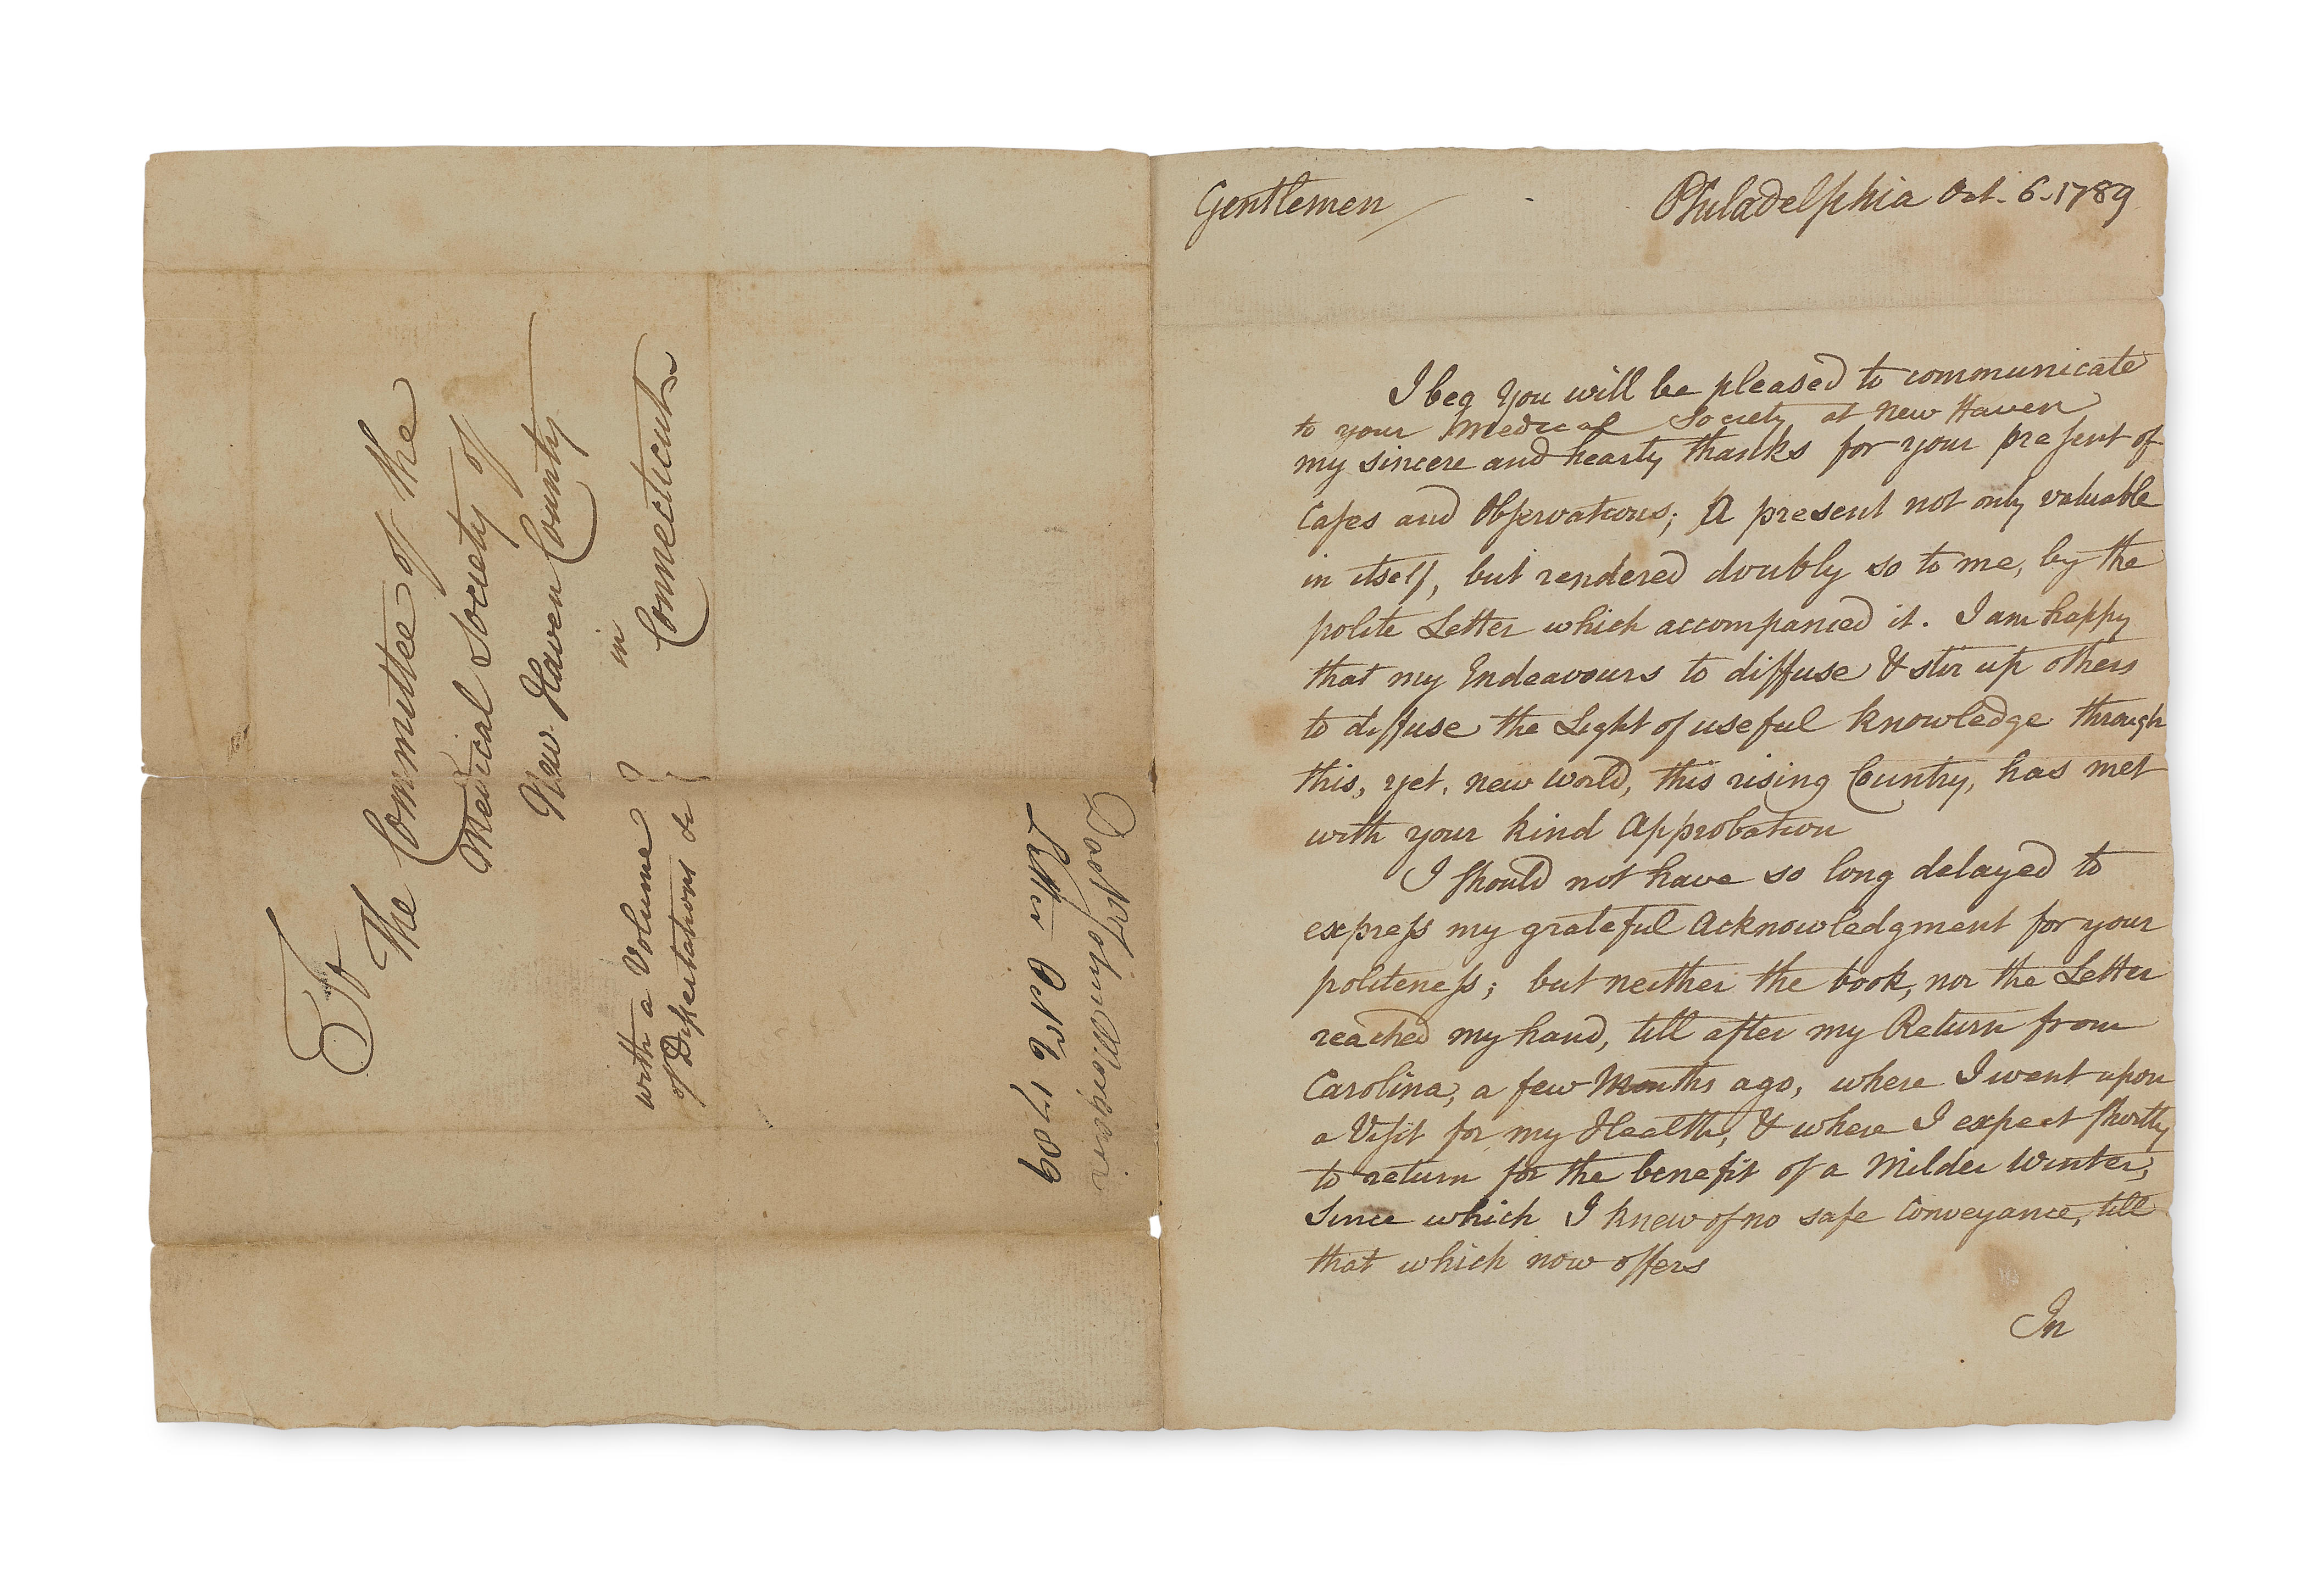 To
The Committee of the
Medical Society of
New Haven County
in
Connecticut
with a Volume
of Dissertations &c
Doctr. John Morgan's
Letter Oct 6 1789
Gentlemen Philadelphia Oct. 6. 1789
I beg you will be pleased to communicate
to your Medical Society at New Haven
my sincere and hearty thanks for your present of
Cases and Observations; A present not only valuable
in itself, but rendered doubly so to me, by the
polite Letter which accompanied it. I am happy
that my Endeavours to diffuse & stir up others
to diffuse the Light of useful knowledge through
this, yet, new world, this rising Country, has met
with your kind Approbation
I should not have so long delayed to
express my grateful Acknowledgment for your
politeness; but neither the book, nor the Letter
reached my hand, till after my Return from
Carolina, a few Months ago, where I went upon
a Visit for my Health, & where I expect shortly
to return for the benefit of a Milder Winter,
Since which I knew of no safe Conveyance, till
that which now offers
In